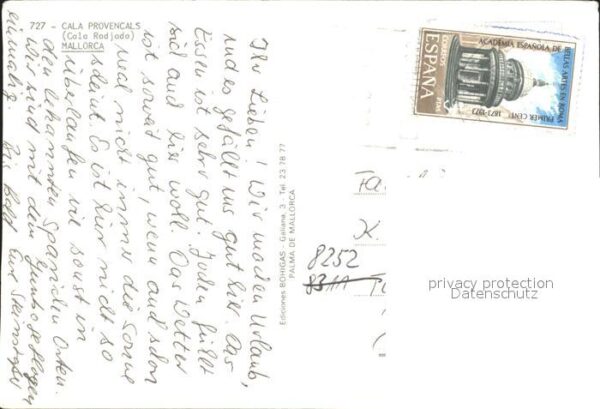 727 - CALA PROVENCALS
(Cala Radjada)
MALLORCA
Ihr Lieben! Wir machen Urlaub,
und es gefällt uns gut hier. Das
Essen ist sehr gut. Jeden fühlt
sich auch hier wohl. Das Wetter
ist soweit gut, wenn auch schon
mal nicht immer die Sonne
scheint. Es ist hier nicht so
überlaufen wie sonst in
den bekannten Spanischen Orten.
Wir sind mit dem geflogen
einmalig. Bis bald
Eure
Ediciones BOHIGAS - Galiana, 3 - Tel. 23 78 77
PALMA DE MALLORCA
CORREOS
ESPAÑA
PTAS
ACADEMIA ESPAÑOLA DE
BELLAS ARTES EN ROMA
PRIMER CENT. 1873-1973
Fa
K
8252
privacy protection
Datenschutz